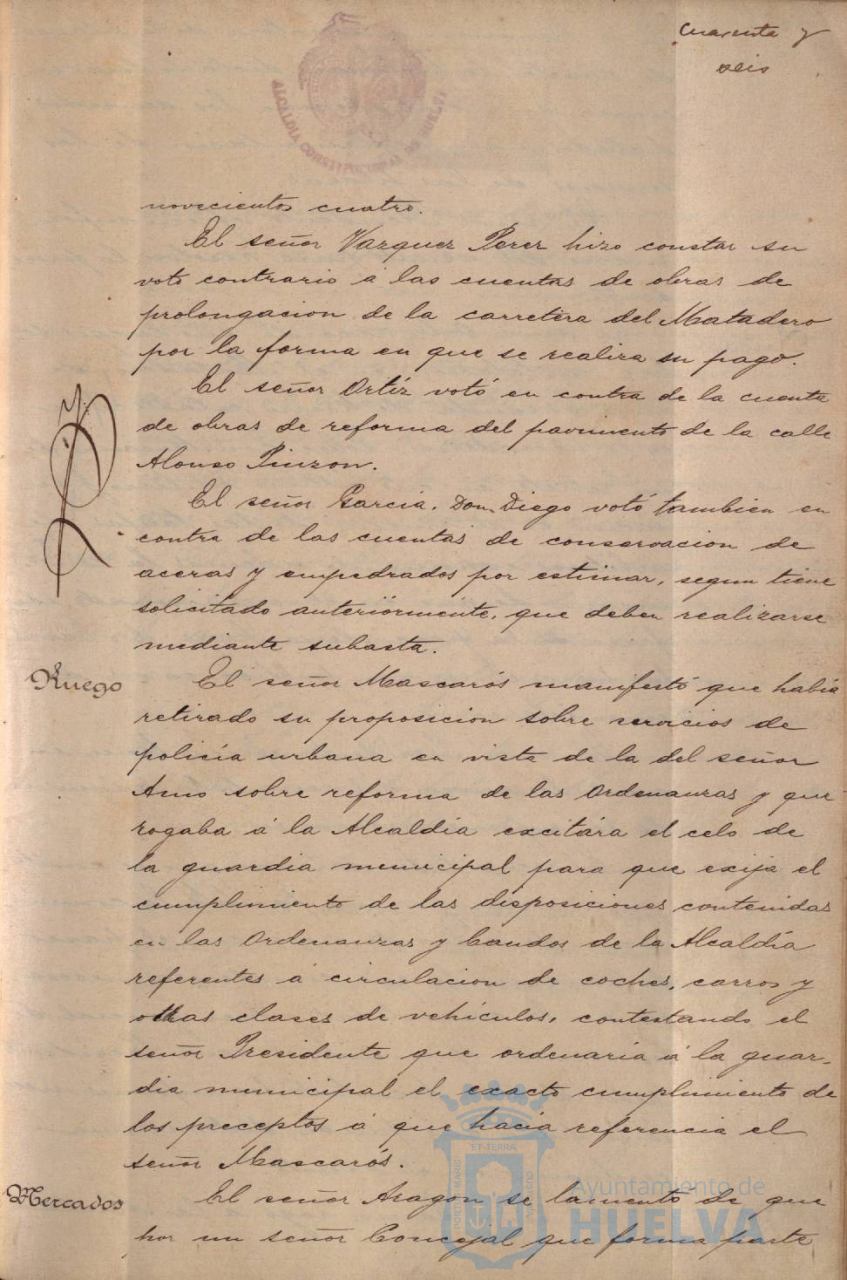 Cuarenta y
seis
ALCALDIA CONSTITUCIONAL DE HUELVA
novecientos cuatro.
El señor Vazquez Perez hizo constar su
voto contrario á las cuentas de obras de
prolongacion de la carretera del Matadero
por la forma en que se realiza su pago.
El señor Ortíz votó en contra de la cuenta
de obras de reforma del pavimento de la calle
Alonso Pinzon.
El señor Garcia, Don Diego votó tambien en
contra de las cuentas de conservacion de
aceras y empedrados por estimar, segun tiene
solicitado anteriormente, que deben realizarse
mediante subasta.
Ruego
El señor Mascarós manifestó que había
retirado su proposicion sobre servicios de
policía urbana en vista de la del señor
Amo sobre reforma de las Ordenanzas y que
rogaba á la Alcaldía excitára el celo de
la guardia municipal para que exija el
cumplimiento de las disposiciones contenidas
en las Ordenanzas y bandos de la Alcaldía
referentes á circulacion de coches, carros y
otras clases de vehículos, contestando el
señor Presidente que ordenaria á la guar-
dia municipal el exacto cumplimiento de
los preceptos á que hacia referencia el
señor Mascarós.
Mercados
El señor Aragon se lamentó de que
por un señor Concejal que forma parte
Ayuntamiento de
HUELVA